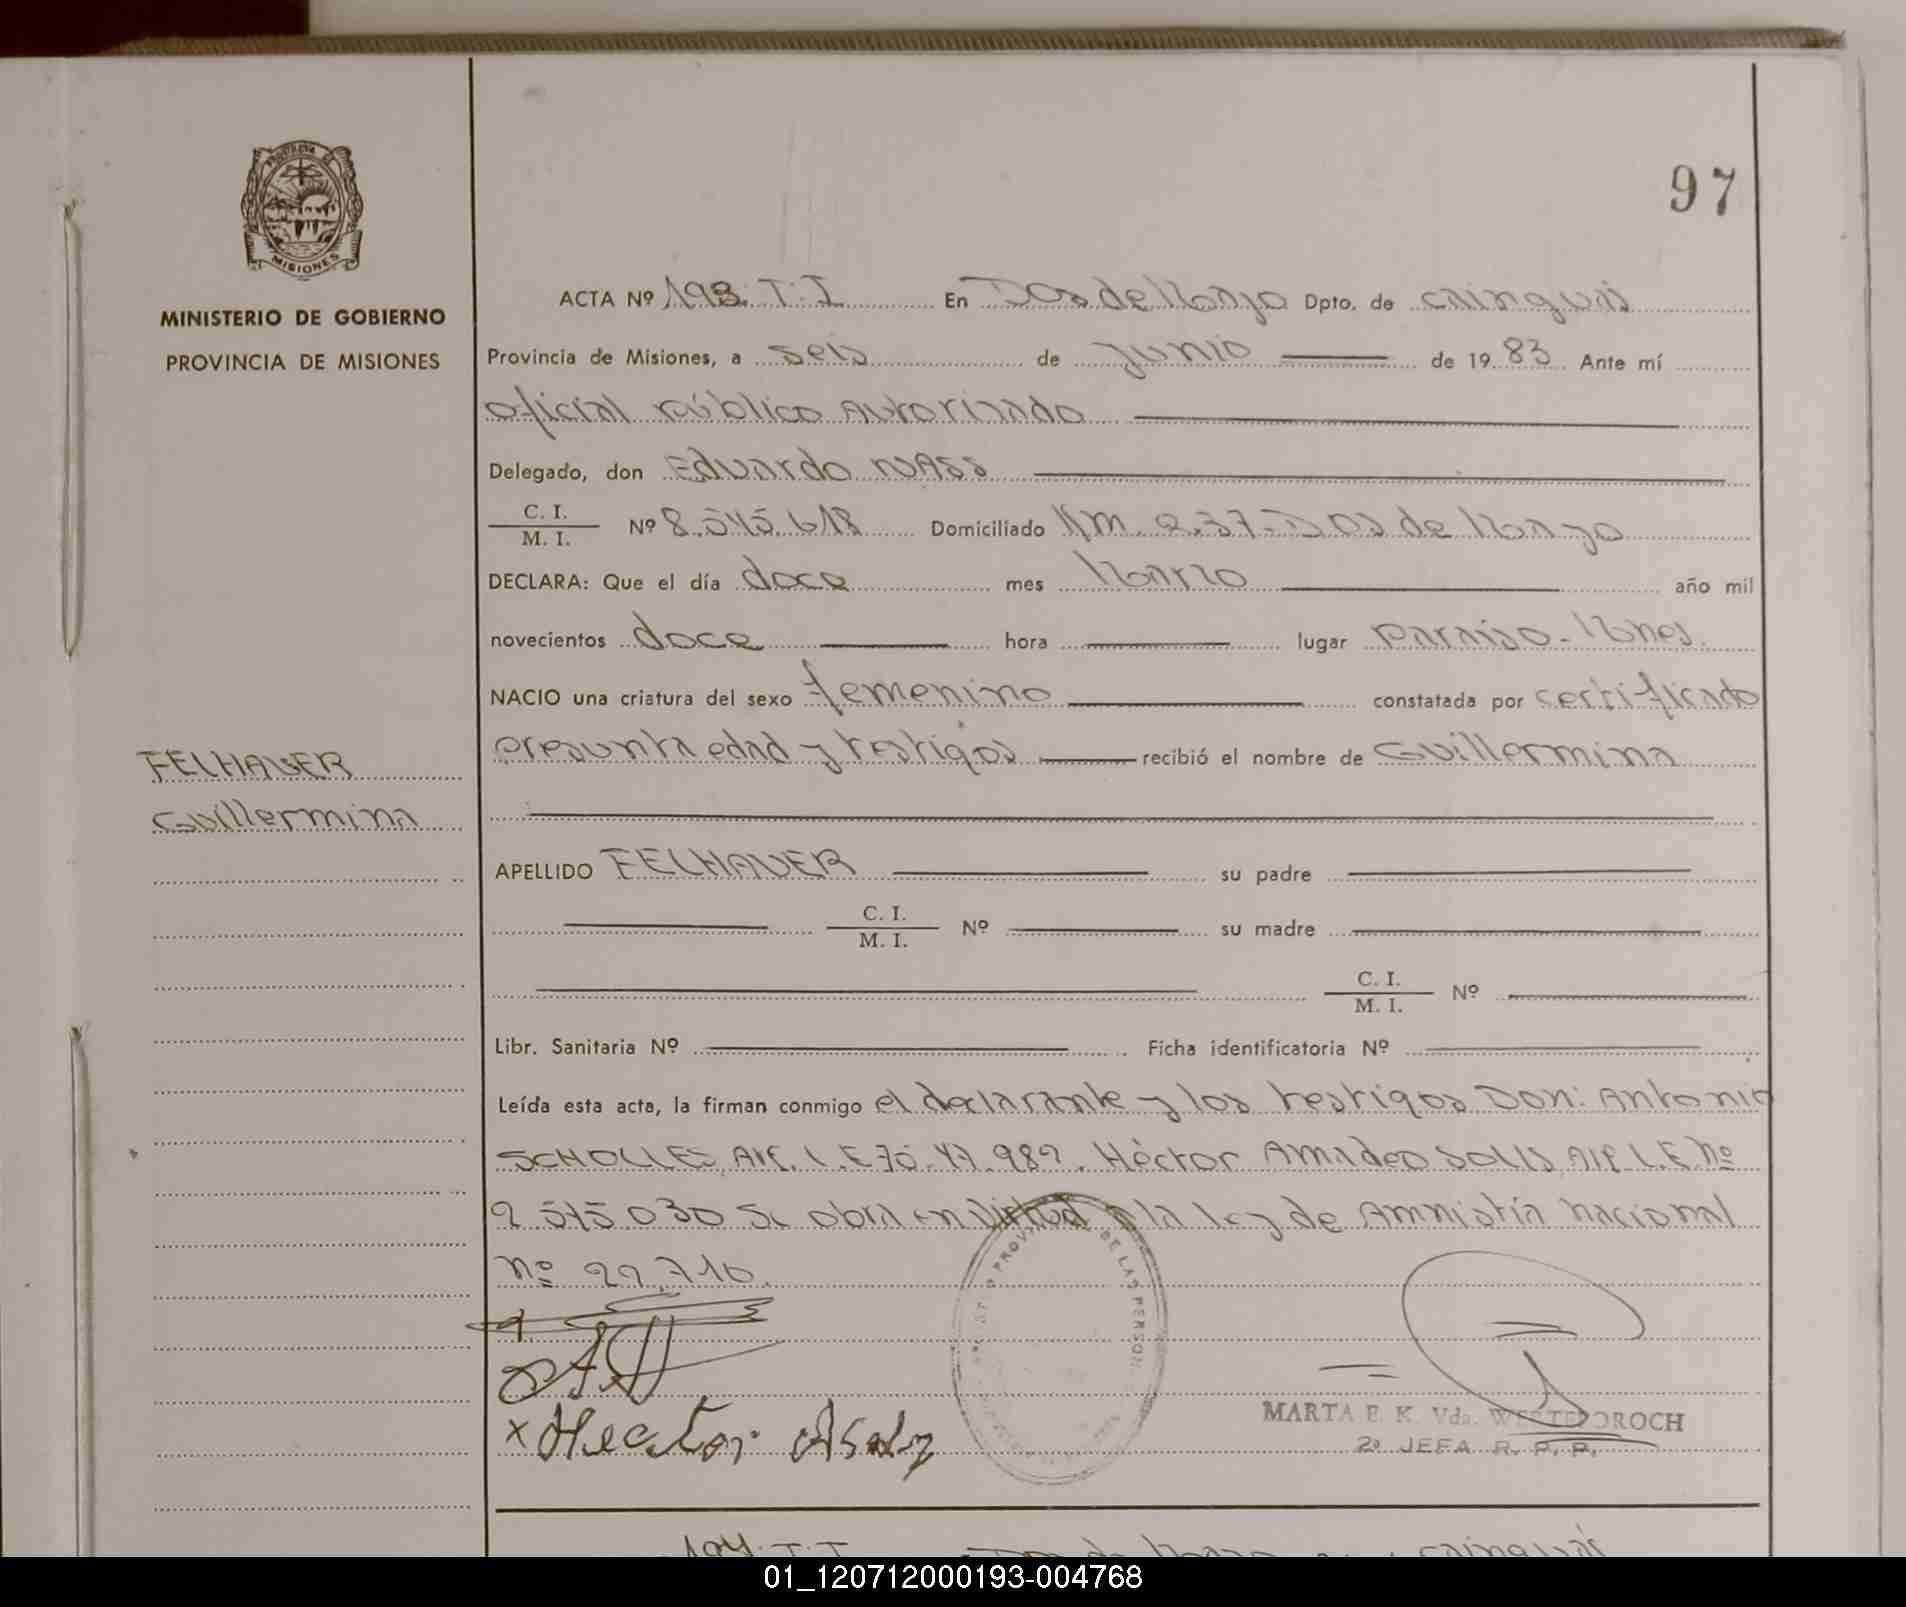 97
PROVINCIA DE
MISIONES
MINISTERIO DE GOBIERNO
PROVINCIA DE MISIONES
ACTA Nº 193. T. I En Dos de Mayo Dpto. de Cainguás
Provincia de Misiones, a seis de Junio de 1983 Ante mí
oficial público Autorizado
Delegado, don Eduardo
C. I.
M. I. Nº 8.545.618 Domiciliado Km. 237-Dos de Mayo
DECLARA: Que el día doce mes Marzo año mil
novecientos doce hora lugar Paraiso-Mnes.
NACIO una criatura del sexo femenino constatada por certificado
presunta edad y testigos recibió el nombre de Guillermina
FELHAUER
Guillermina
APELLIDO FELHAUER su padre
C. I.
M. I. Nº su madre
C. I.
M. I. Nº
Libr. Sanitaria Nº Ficha identificatoria Nº
Leída esta acta, la firman conmigo el declarante y los testigos Don: Antonio
SCHOLLES, Héctor Amadeo SOLIS L.E. Nº
2 545 030 Se obra en virtud a la ley de Amnistía Nacional
Nº 22.710.
PROVIN DE LAS PERSON
x Hector
MARTA E. K. Vda. WESTERDROCH
2ª JEFA R. P. P.
194. T. I Dos de Mayo Cainguás
01_120712000193-004768